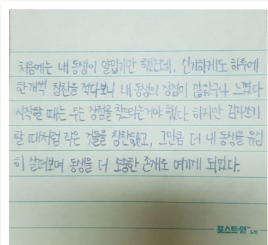 처음에는 내 동생이 얄밉기만 했는데, 신기하게도 하루에
한개씩 칭찬을 적다보니 내 동생이 장점이 많았구나 느꼈다
시작할 때는 무슨 장점을 찾으라는거야 했다. 하지만 감사쓰기
할 때처럼 작은 것들을 칭찬했고, 그만큼 더 내 동생을 유심
히 살펴보며 동생을 더 소중한 존재로 여기게 되었다.
포스트-잇